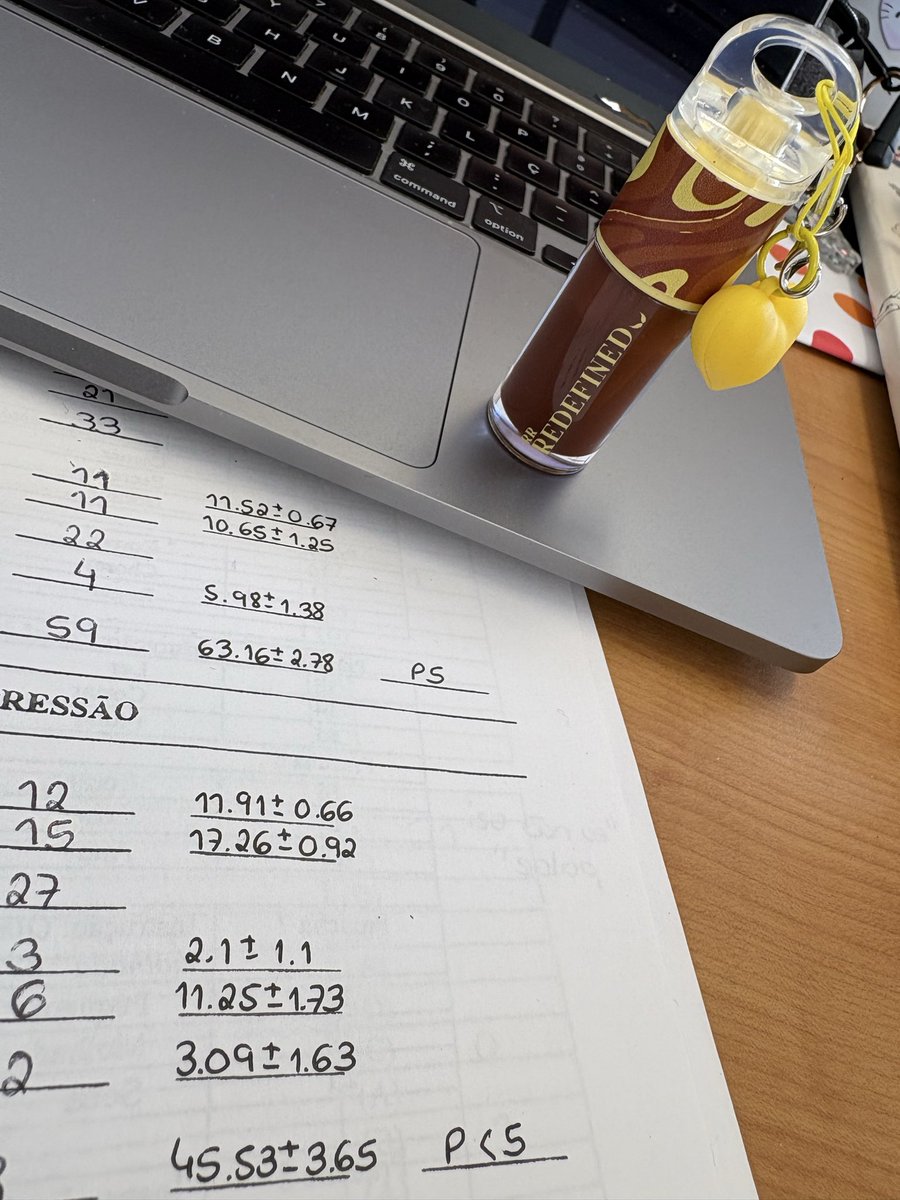 Y
U
B
H
J
I
N
K
O
M
L
P
Ç
⌘
command
⌥
option
RR
REDEFINED
21
33
11
11
11.52 ± 0.67
10.65 ± 1.25
22
4
5.98 ± 1.38
59
63.16 ± 2.78 P5
RESSÃO
12 11.91 ± 0.66
15 17.26 ± 0.92
27
3 2.1 ± 1.1
6 11.25 ± 1.73
2 3.09 ± 1.63
45.53 ± 3.65 P < 5